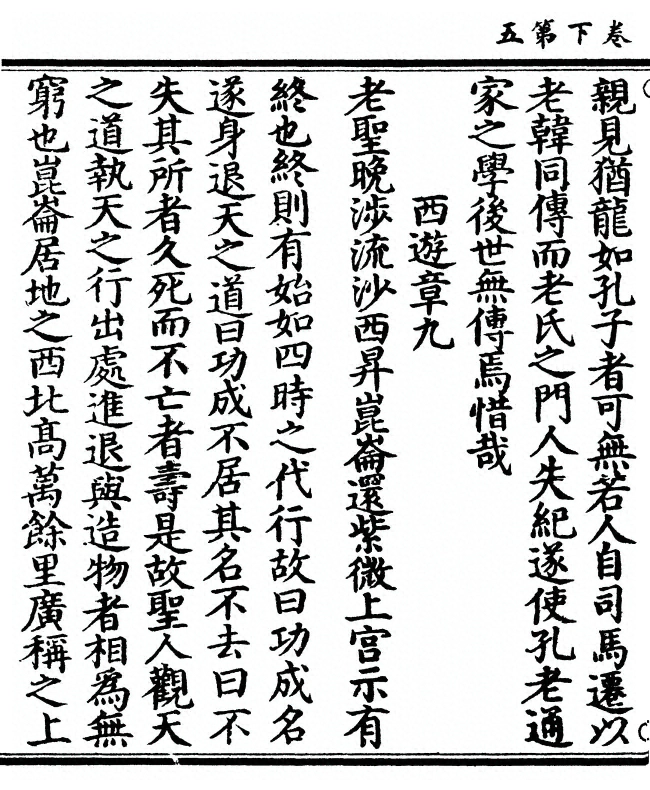 卷下第五
親見猶龍如孔子者可無若人自司馬遷以
老韓同傳而老氏之門人失紀遂使孔老通
家之學後世無傳焉惜哉
西遊章九
老聖晚涉流沙西昇崑崙還紫微上宮示有
終也終則有始如四時之代行故曰功成名
遂身退天之道曰功成不居其名不去曰不
失其所者久死而不亡者壽是故聖人觀天
之道執天之行出處進退與造物者相爲無
窮也崑崙居地之西北高萬餘里廣稱之上